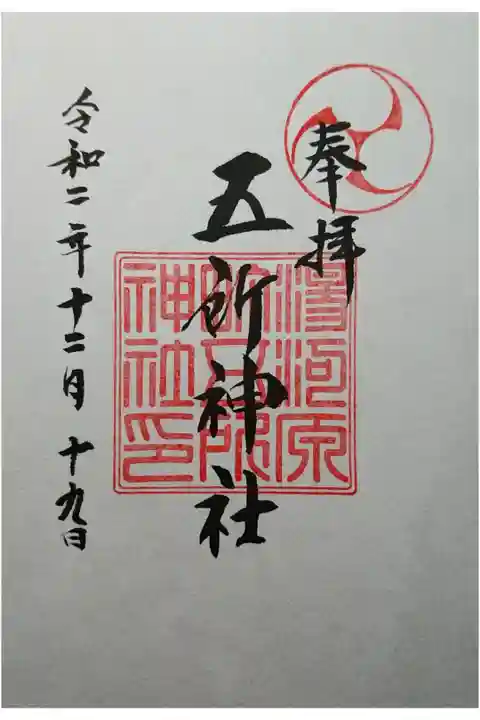 奉拝
五所神社
湯河原
神社印
令和二年十二月十九日